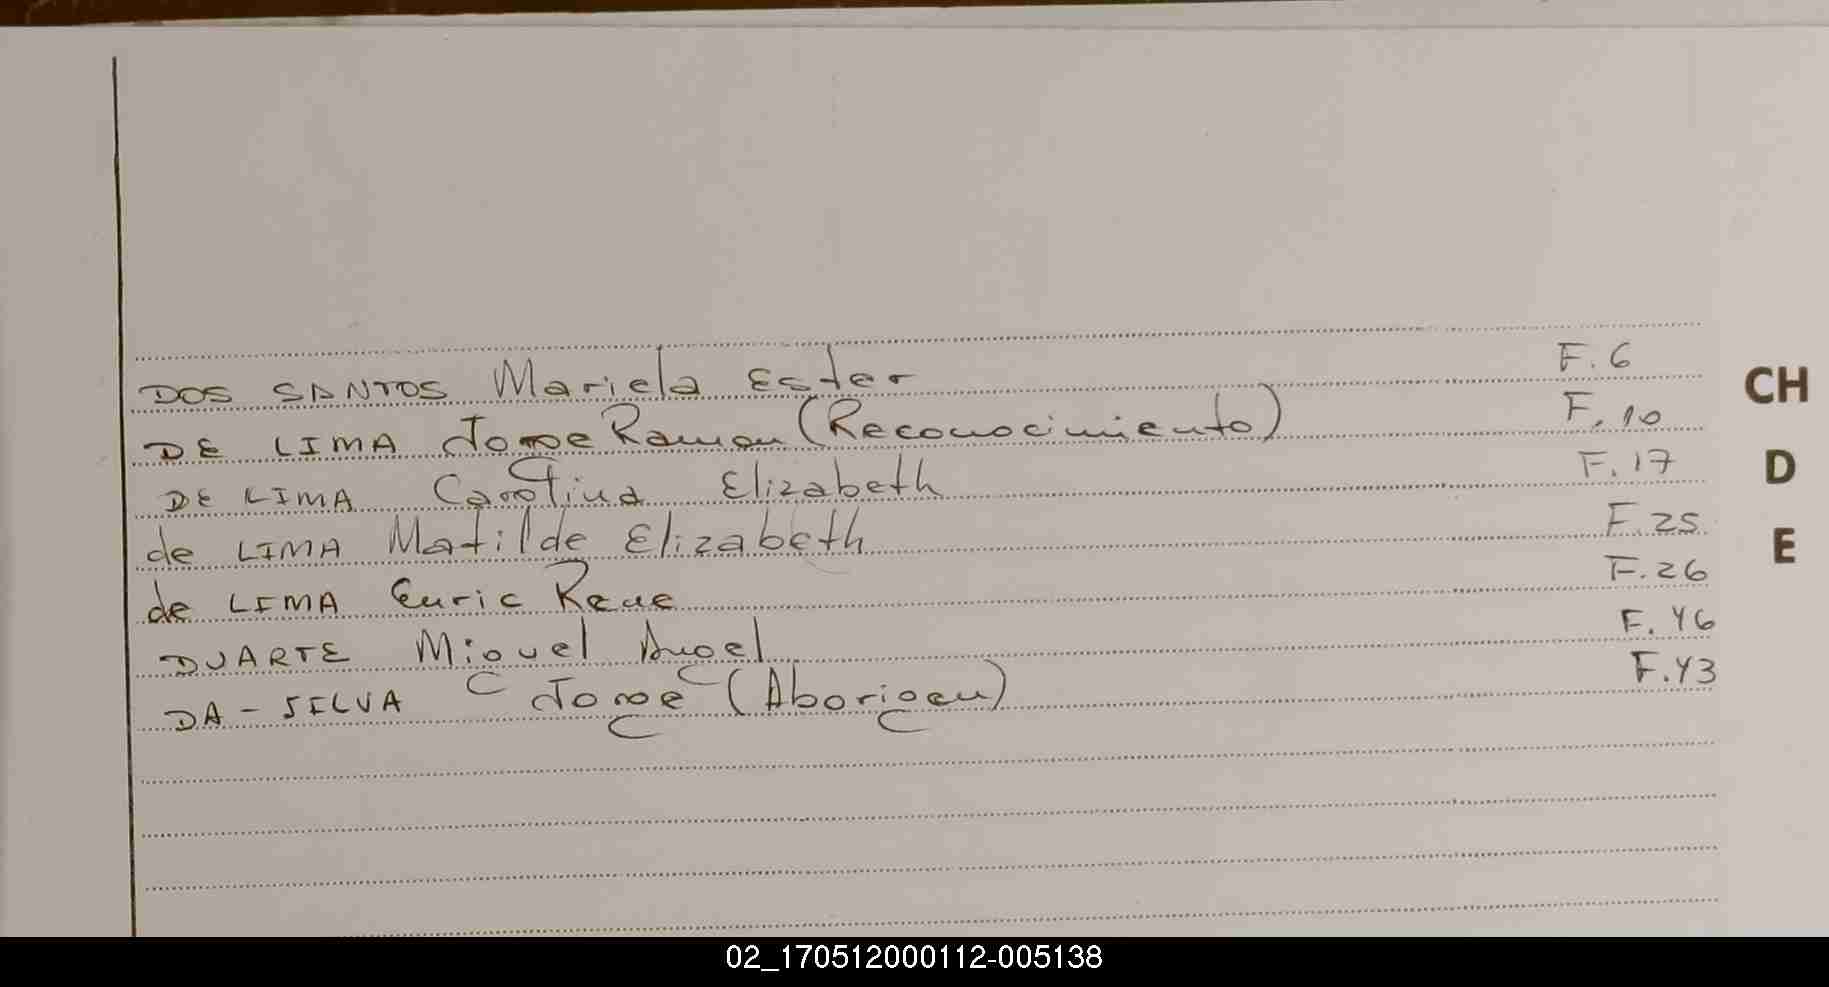 DOS SANTOS Mariela Ester F. 6
DE LIMA Jorge Ramon (Reconocimiento) F. 10
DE LIMA Carolina Elizabeth F. 17
de LIMA Matilde Elizabeth F. 25
de LIMA Euric Rene F. 26
DUARTE Miguel Angel F. 46
DA-SILVA Jorge (Aborigen) F. 43
CH
D
E
02_170512000112-005138